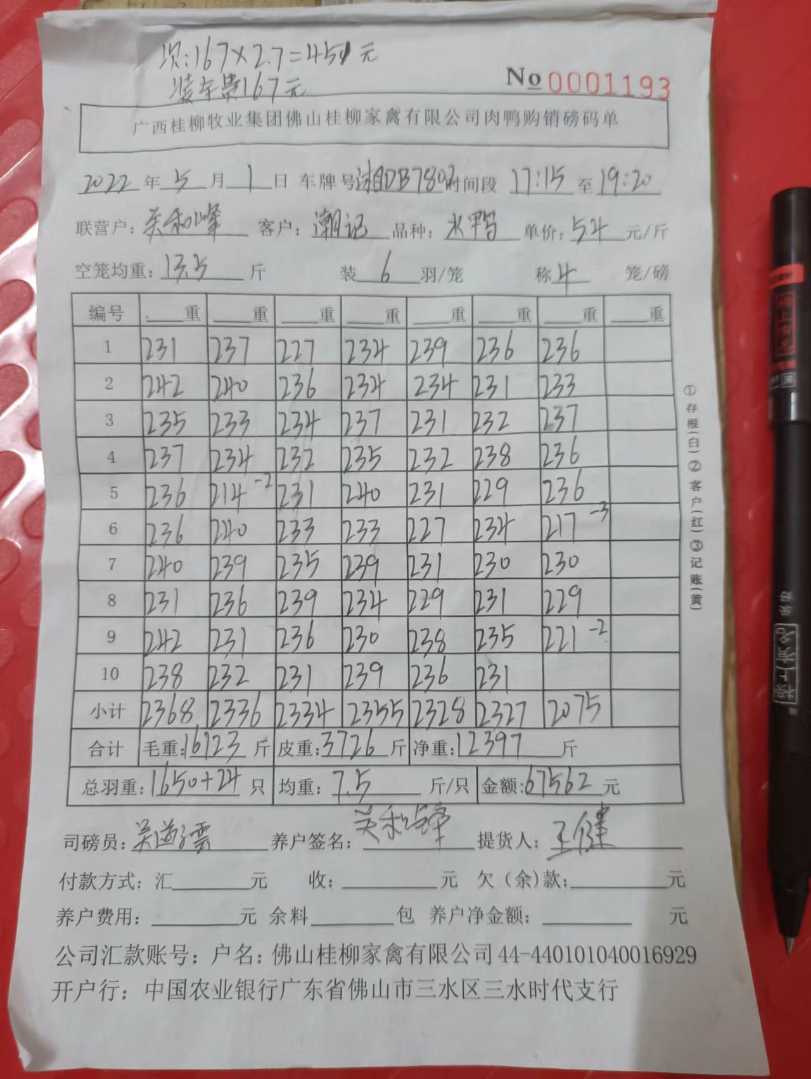 坝:167×2.7=451元
装车费167元
No 0001193
广西桂柳牧业集团佛山桂柳家禽有限公司肉鸭购销磅码单
2022年5月1日 车牌号 时间段 17:15 至 19:20
联营户: 客户:潮记 品种:水鸭 单价:5.4 元/斤
空笼均重:13.5 斤 装 6 羽/笼 称 4 笼/磅
编号 重 重 重 重 重 重 重 重
1 231 237 227 234 239 236 236
2 242 240 236 234 234 231 233
3 235 233 234 237 231 232 237
4 237 234 232 235 232 238 236
5 236 214-2 231 240 231 229 236
6 236 240 233 233 227 234 217-3
7 240 239 235 239 231 230 230
8 231 236 239 234 229 231 229
9 242 231 236 230 238 235 221-2
10 238 232 231 239 236 231
小计 2368 2336 2334 2355 2328 2327 2075
合计 毛重:16123 斤 皮重:3726 斤 净重:12397 斤
总羽重:1650+24 只 均重:7.5 斤/只 金额:67562 元
司磅员: 养户签名: 提货人:王健
付款方式:汇 元 收: 元 欠(余)款: 元
养户费用: 元 余料 包 养户净金额: 元
公司汇款账号:户名:佛山桂柳家禽有限公司44-440101040016929
开户行:中国农业银行广东省佛山市三水区三水时代支行
①存根(白)②客户(红)③记账(黄)